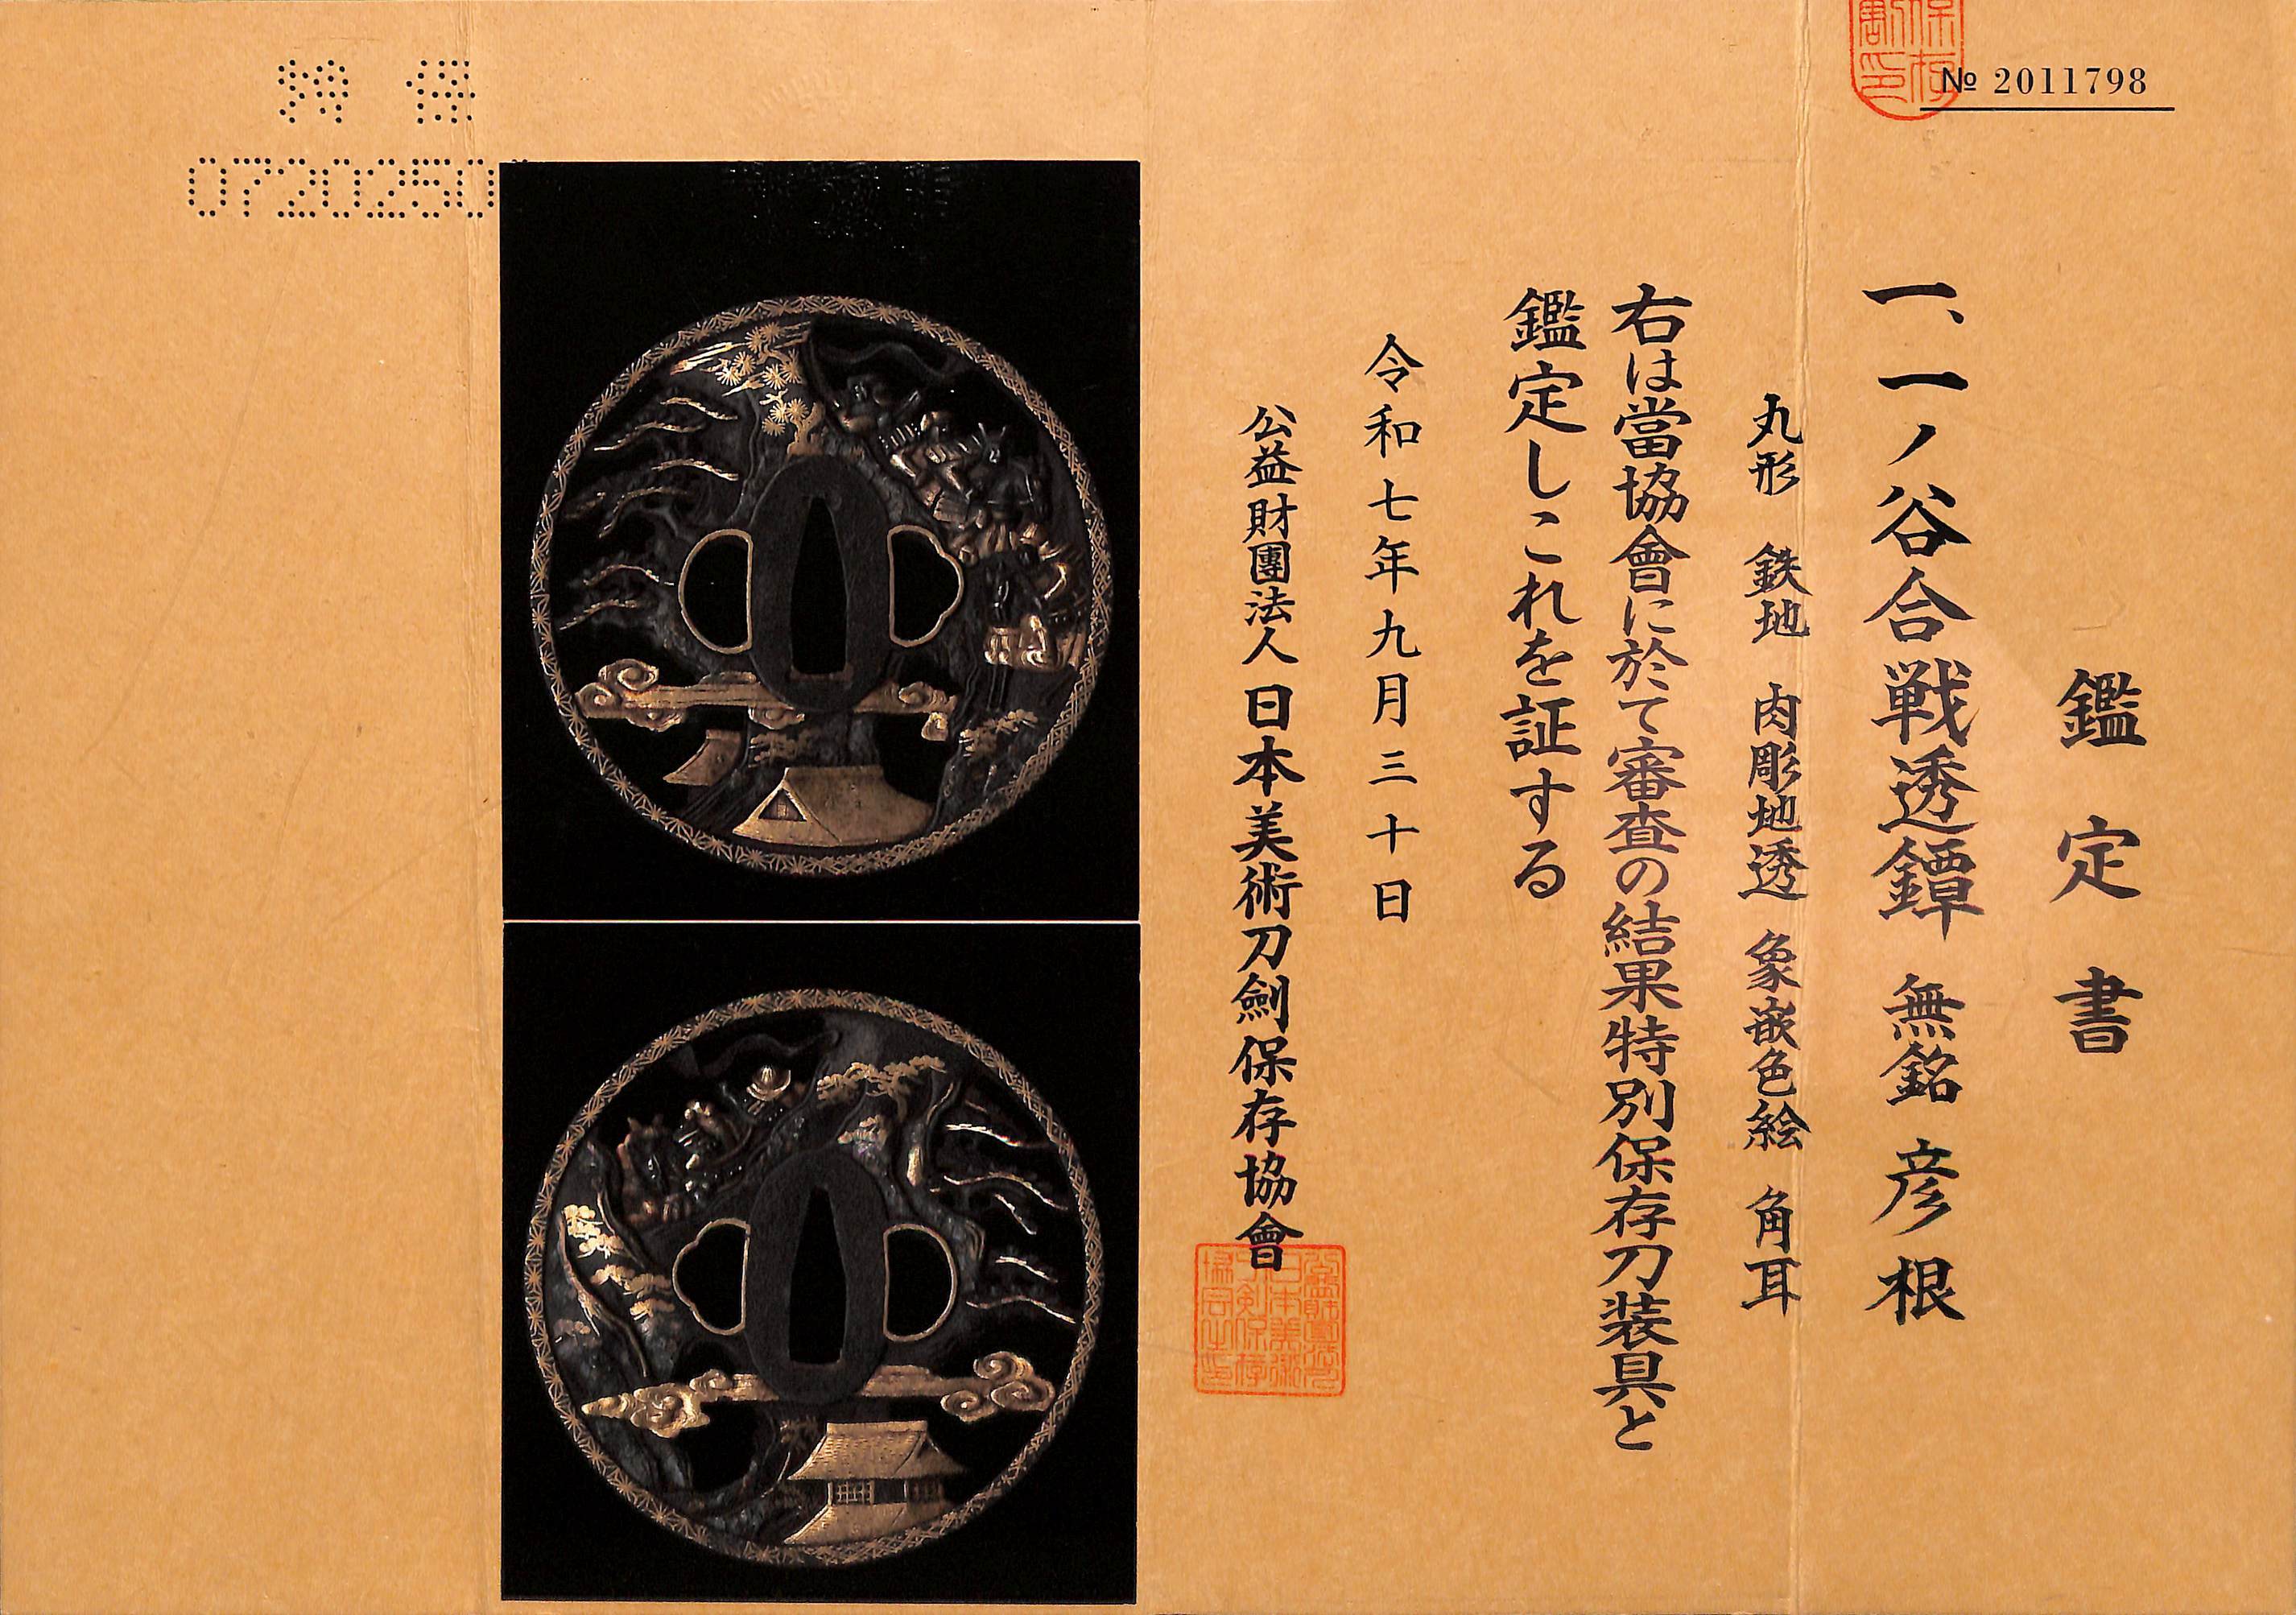 № 2011798
鑑定書
一、一ノ谷合戦透鐔 無銘 彦根
丸形 鉄地 肉彫地透 象嵌色絵 角耳
右は當協會に於て審査の結果特別保存刀装具と
鑑定しこれを証する
令和七年九月三十日
公益財團法人日本美術刀劍保存協會
0720250